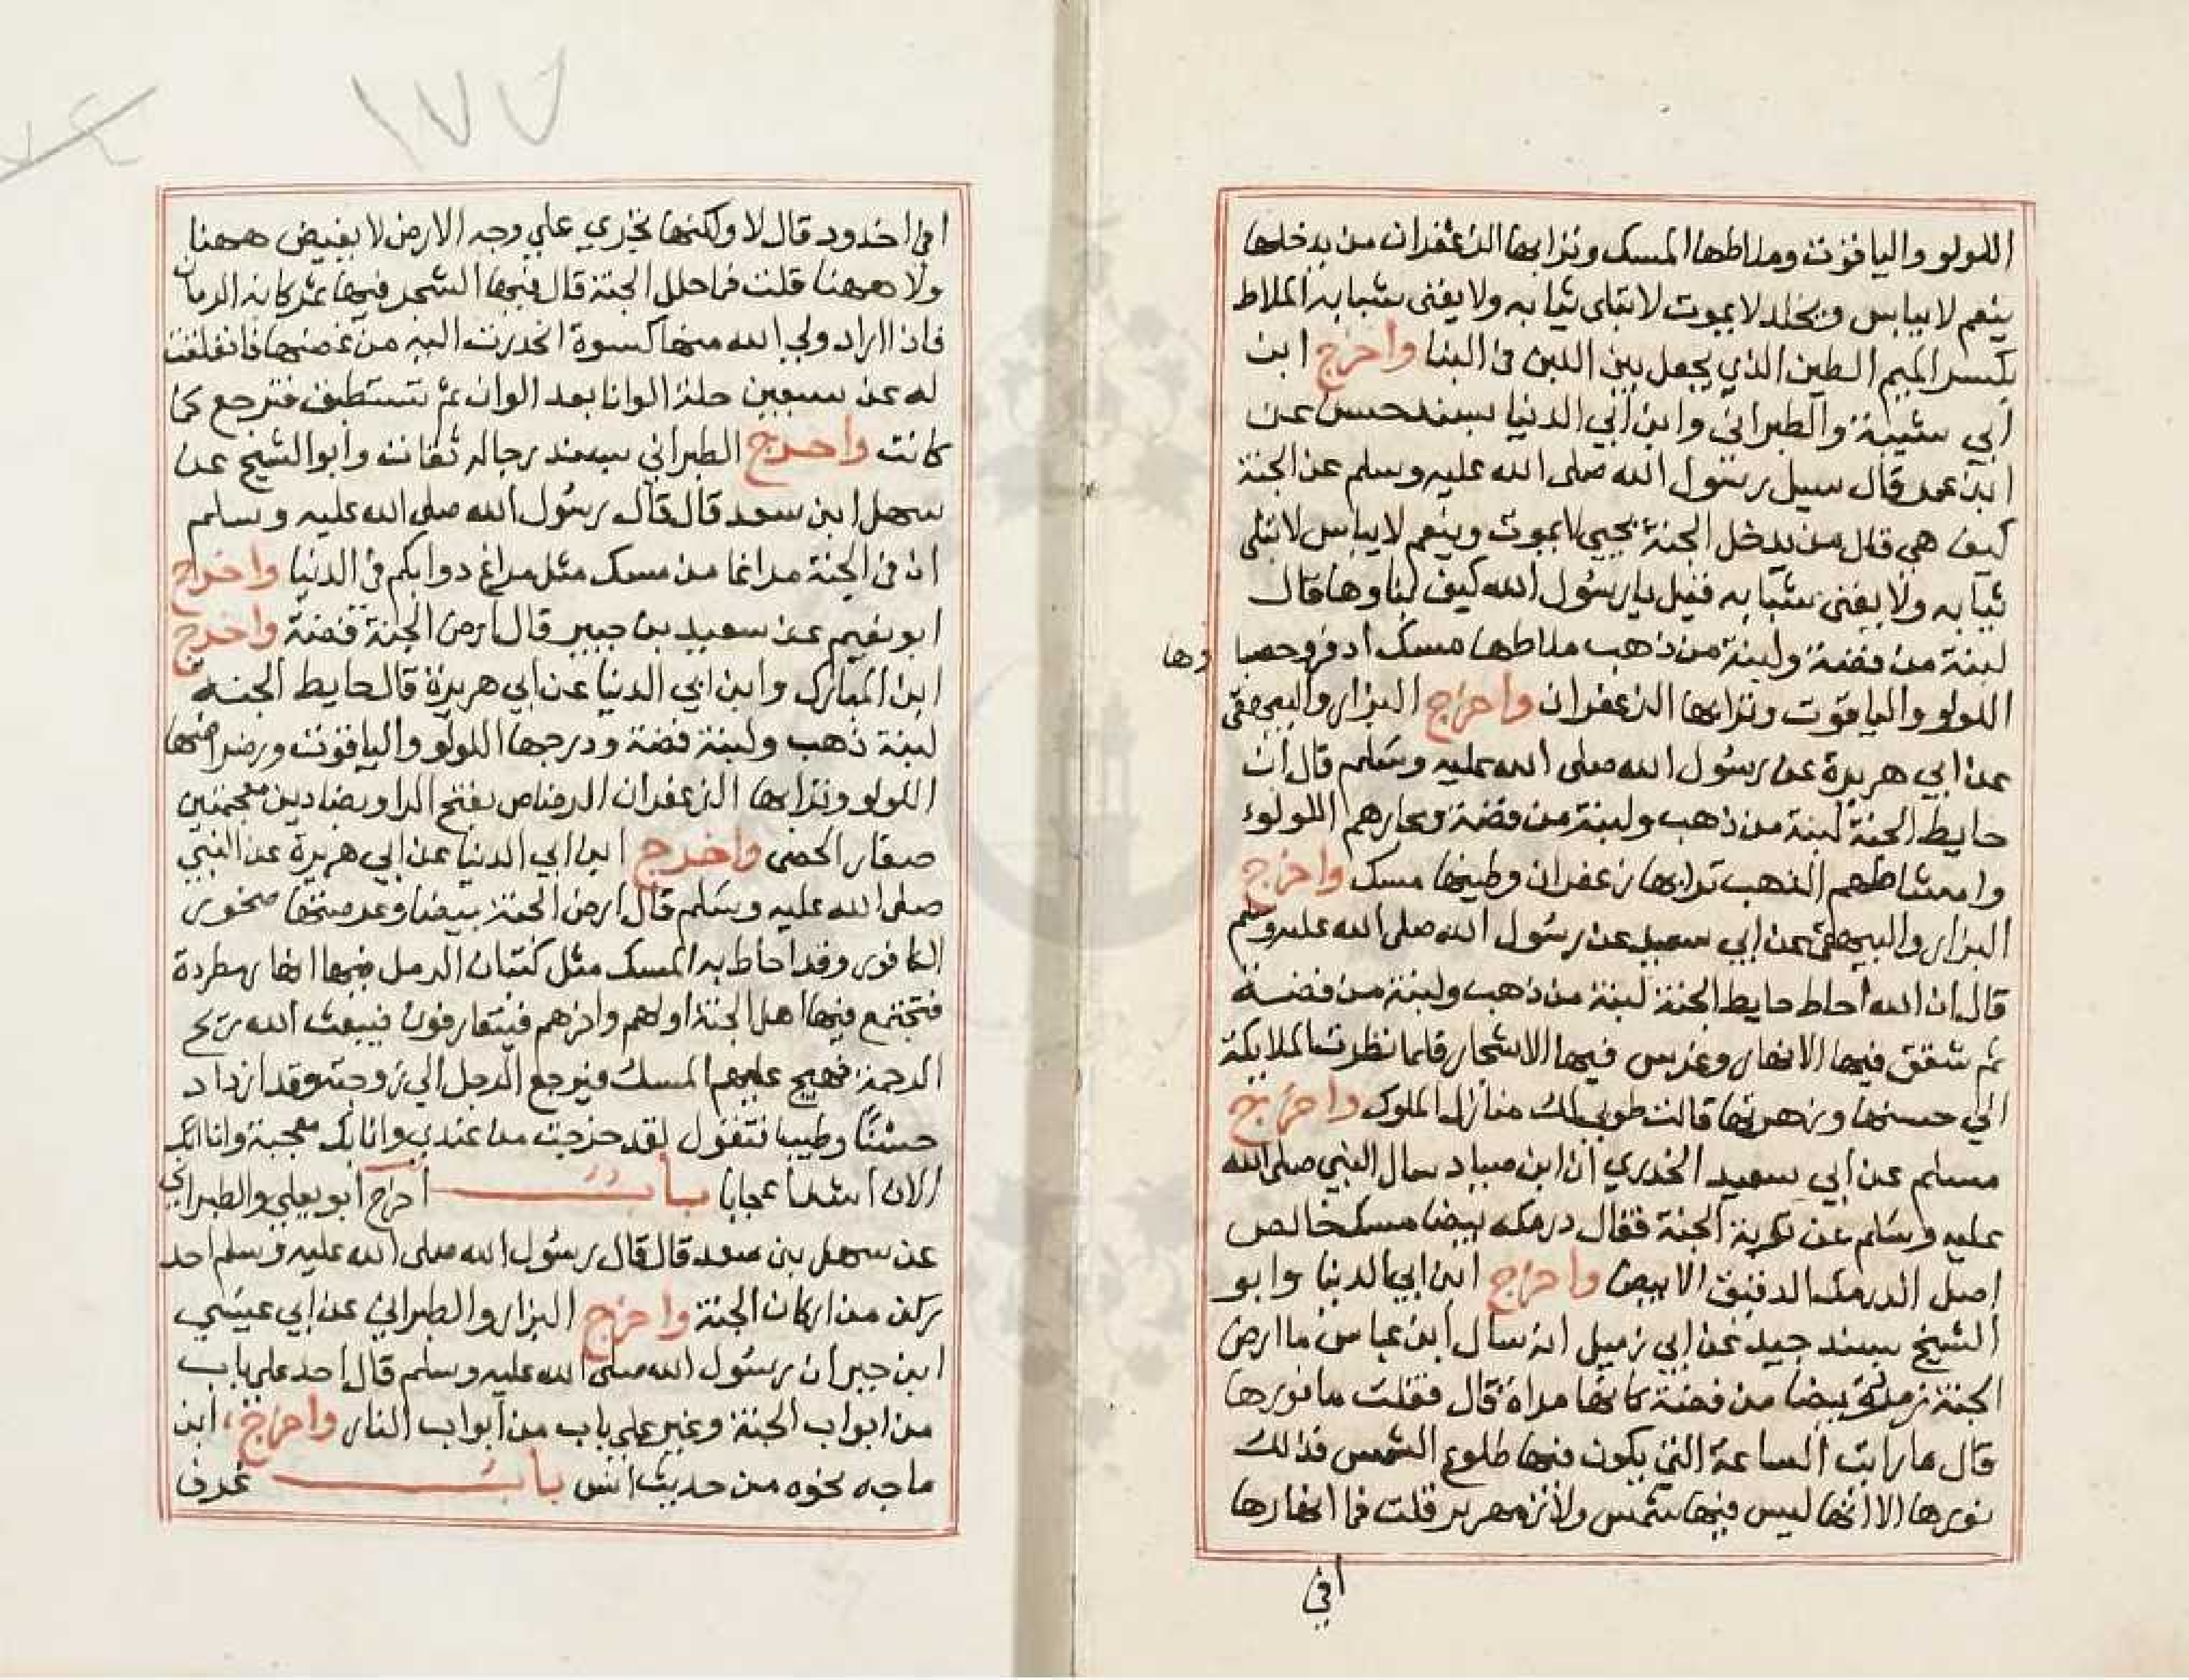 اللولو والياقوت وملاطها المسك وترابها الزعفران من يدخلها
ينعم لا يباس ويخلد لا يموت لا تبلى ثيابه ولا يفنى شبابه الملاط
بكسر الميم الطين الذي يجعل بين اللبن في البنا واخرج ابن
ابي شيبة والطبراني وابن ابي الدنيا بسند حسن عن
ابن عمر قال سيل رسول الله صلى الله عليه وسلم عن الجنة
كيف هي قال من يدخل الجنة يحيى لا يموت وينعم لا يباس لا تبلى
ثيابه ولا يفنى شبابه فقيل يا رسول الله كيف بناوها قال
لبنة من فضة ولبنة من ذهب ملاطها مسك ادفر وحصبا وها
اللولو والياقوت وترابها الزعفران واخرج البزار والبيهقي
عن ابي هريرة عن رسول الله صلى الله عليه وسلم قال ان
حايط الجنة لبنة من ذهب ولبنة من فضة ومجارهم اللولوء
وامشاطهم الذهب ترابها زعفران وطينها مسك واخرج
البزار والبيهقي عن ابي سعيد عن رسول الله صلى الله عليه وسلم
قال ان الله احاط حايط الجنة لبنة من ذهب ولبنة من فضة
ثم شقق فيها الانهار وغرس فيها الاشجار فلما نظرت الملايكة
الي حسنها وزهرتها قالت طوبى لك منازل الملوك واخرج
مسلم عن ابي سعيد الخدري ان ابن صياد سال النبي صلى الله
عليه وسلم عن تربة الجنة فقال درمكه بيضا مسك خالص
اصل الدرمك الدقيق الابيض واخرج ابن ابي الدنيا وابو
الشيخ بسند جيد عن ابي زميل انه سال ابن عباس ما ارض
الجنة مرمرة بيضا من فضة كانها مراة قال فقلت ما نورها
قال ما رايت الساعة التي يكون فيها طلوع الشمس فذلك
نورها الا انها ليس فيها شمس ولا زمهرير قلت فما انهارها
افي
١٧٧
افي اخدود قال لا ولكنها تجري علي وجه الارض لا يفيض ههنا
ولا ههنا قلت فما حلل الجنة قال فيها الشجر فيها ثمر كانه الرمان
فاذا اراد ولي الله منها كسوة انحدرت اليه من غصنها فانفلقت
له عن سبعين حلة الوانا بعد الوان ثم تستطبق فترجع كما
كانت واخرج الطبراني بسند رجاله ثقات وابو الشيخ عن
سهل ابن سعد قال قال رسول الله صلى الله عليه وسلم
ان في الجنة مراغا من مسك مثل مراغ دوابكم في الدنيا واخرج
ابو نعيم عن سعيد بن جبير قال ارض الجنة فضة واخرج
ابن المبارك وابن ابي الدنيا عن ابي هريرة قال حايط الجنة
لبنة ذهب ولبنة فضة ودرجها اللولو والياقوت ورضراضها
اللولو وترابها الزعفران الرضاض بفتح الرا وبضادين معجمتين
صغار الحصى واخرج ابن ابي الدنيا عن ابي هريرة عن النبي
صلى الله عليه وسلم قال ارض الجنة بيضا وعرصتها صخور
الكافور وقد احاط به المسك مثل كثبان الرمل فيها انهار مطردة
فتجتمع فيها اهل الجنة اولهم واخرهم فيتعارفون فيبعث الله ريح
الرحمة فتهيج عليهم المسك فيرجع الرجل الي زوجته وقد ازداد
حسنا وطيبا فتقول لقد خرجت من عندي وانا بك معجبة وانا بك
الان اشد عجابا باب اخرج ابو يعلي والطبراني
عن سهل بن سعد قال قال رسول الله صلى الله عليه وسلم احد
ركن من اركان الجنة واخرج البزار والطبراني عن ابي عيسى
ابن جبر ان رسول الله صلى الله عليه وسلم قال احد على باب
من ابواب الجنة وعير علي باب من ابواب النار واخرج ابن
ماجه نحوه من حديث انس باب غرف